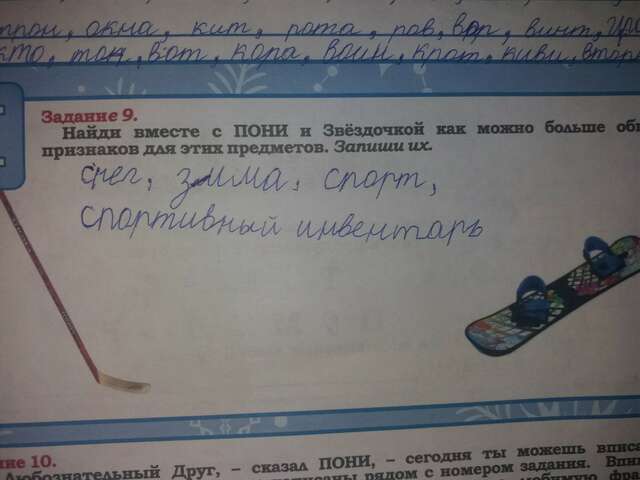 окна, кит, рота, ров, вор, винт,
кто, ток, вот, кора, воин, крот, киви,
Задание 9.
Найди вместе с ПОНИ и Звёздочкой как можно больше об
признаков для этих предметов. Запиши их.
снег, зима, спорт,
спортивный инвентарь
ние 10.
Любознательный Друг, – сказал ПОНИ, – сегодня ты можешь впис
рядом с номером задания. Впи